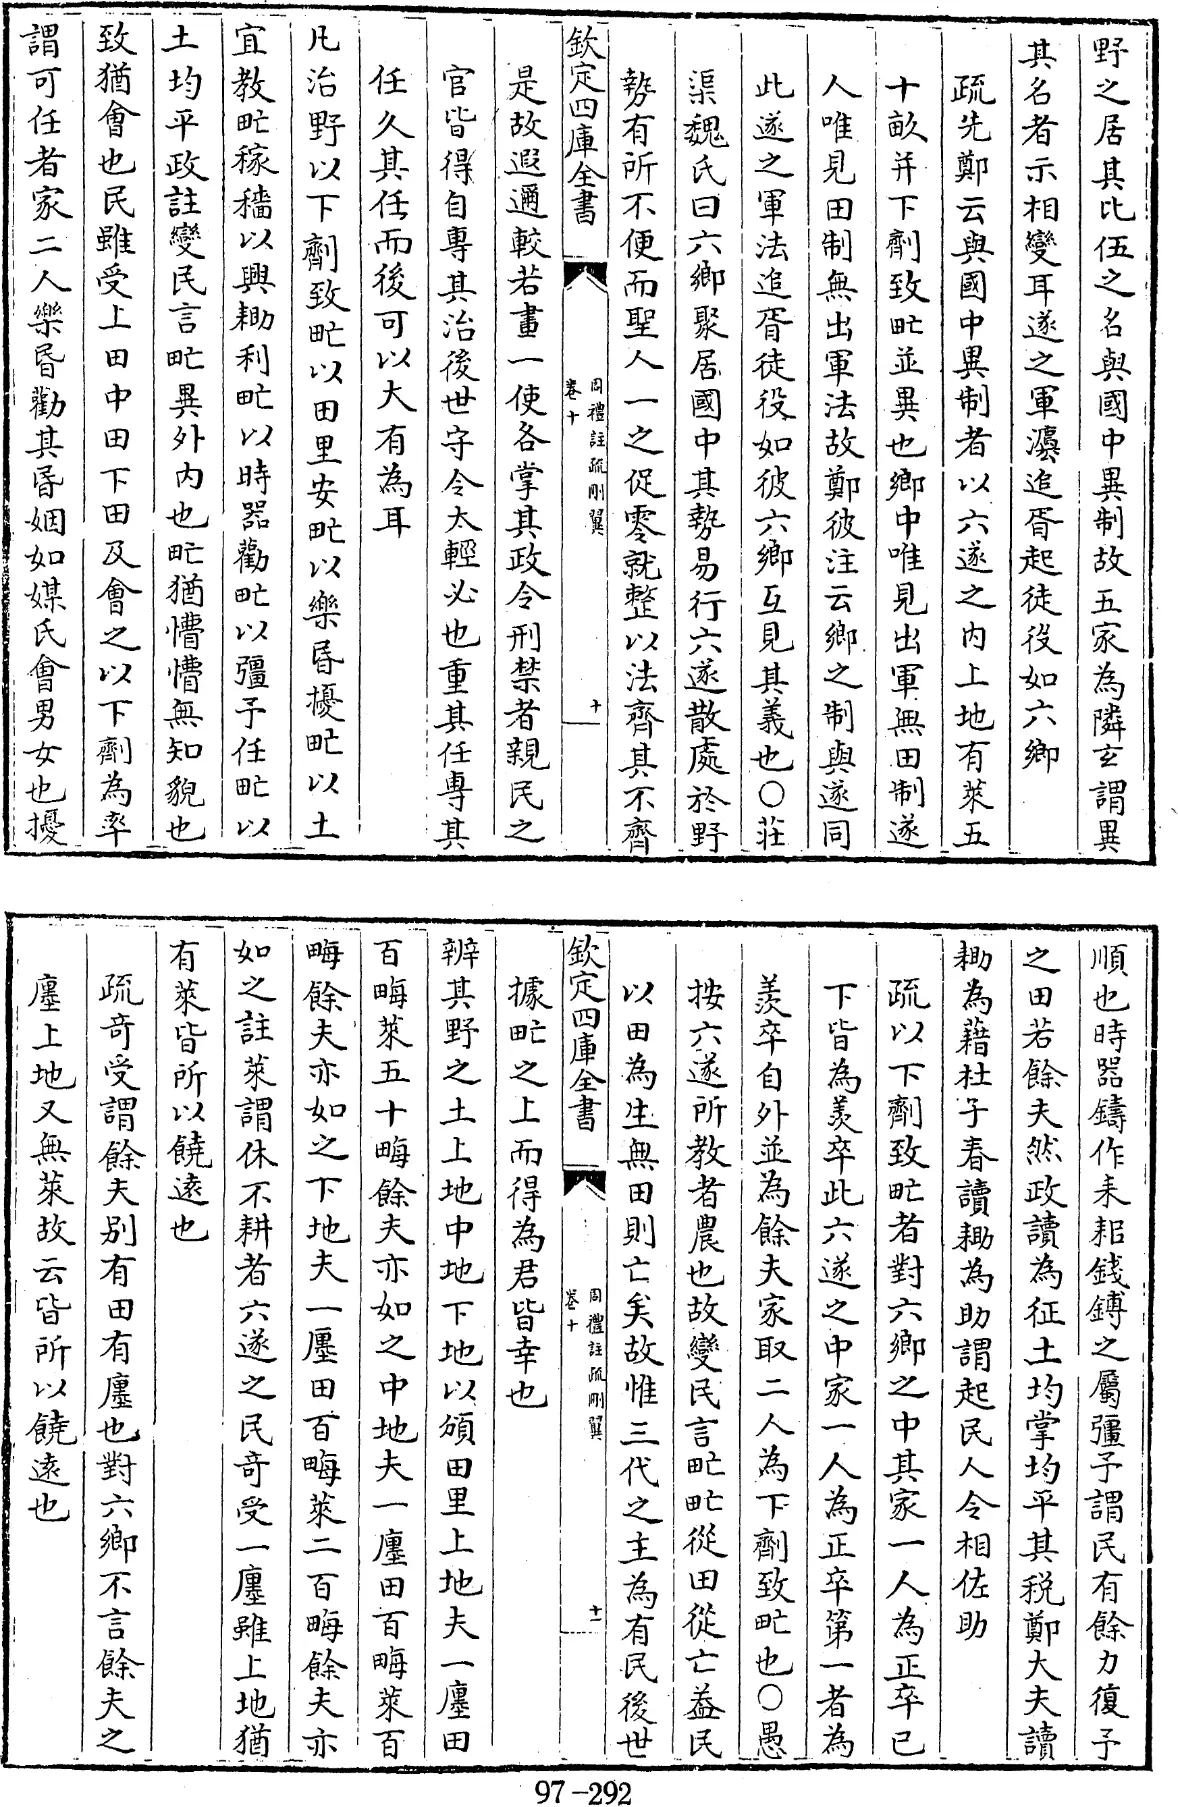 野之居其比伍之名與國中異制故五家為隣玄謂異
其名者示相變耳遂之軍灋追胥起徒役如六鄉
疏先鄭云與國中異制者以六遂之内上地有萊五
十畝并下劑致甿並異也鄉中唯見出軍無田制遂
人唯見田制無出軍法故鄭彼注云鄉之制與遂同
此遂之軍法追胥徒役如彼六鄉互見其義也〇莊
渠魏氏曰六鄉聚居國中其勢易行六遂散處於野
勢有所不便而聖人一之促零就整以法齊其不齊
欽定四庫全書
周禮註疏刪翼
卷十
十
是故遐邇較若畫一使各掌其政令刑禁者親民之
官皆得自專其治後世守令太輕必也重其任專其
任久其任而後可以大有為耳
凡治野以下劑致甿以田里安甿以樂昬擾甿以土
宜教甿稼穡以興耡利甿以時器勸甿以彊予任甿以
土均平政註變民言甿異外内也甿猶懵懵無知貌也
致猶會也民雖受上田中田下田及會之以下劑為率
謂可任者家二人樂昬勸其昬姻如媒氏會男女也擾
順也時器鑄作耒耜錢鎛之屬彊予謂民有餘力復予
之田若餘夫然政讀為征土均掌均平其稅鄭大夫讀
耡為藉杜子春讀耡為助謂起民人令相佐助
疏以下劑致甿者對六鄉之中其家一人為正卒已
下皆為羨卒此六遂之中家一人為正卒第一者為
羨卒自外並為餘夫家取二人為下劑致甿也〇愚
按六遂所教者農也故變民言甿甿從田從亡益民
以田為生無田則亡矣故惟三代之主為有民後世
欽定四庫全書
周禮註疏刪翼
卷十
十一
據甿之上而得為君皆幸也
辨其野之土上地中地下地以頒田里上地夫一廛田
百晦萊五十晦餘夫亦如之中地夫一廛田百晦萊百
晦餘夫亦如之下地夫一廛田百晦萊二百晦餘夫亦
如之註萊謂休不耕者六遂之民奇受一廛雖上地猶
有萊皆所以饒遠也
疏奇受謂餘夫別有田有廛也對六鄉不言餘夫之
廛上地又無萊故云皆所以饒遠也
97-292